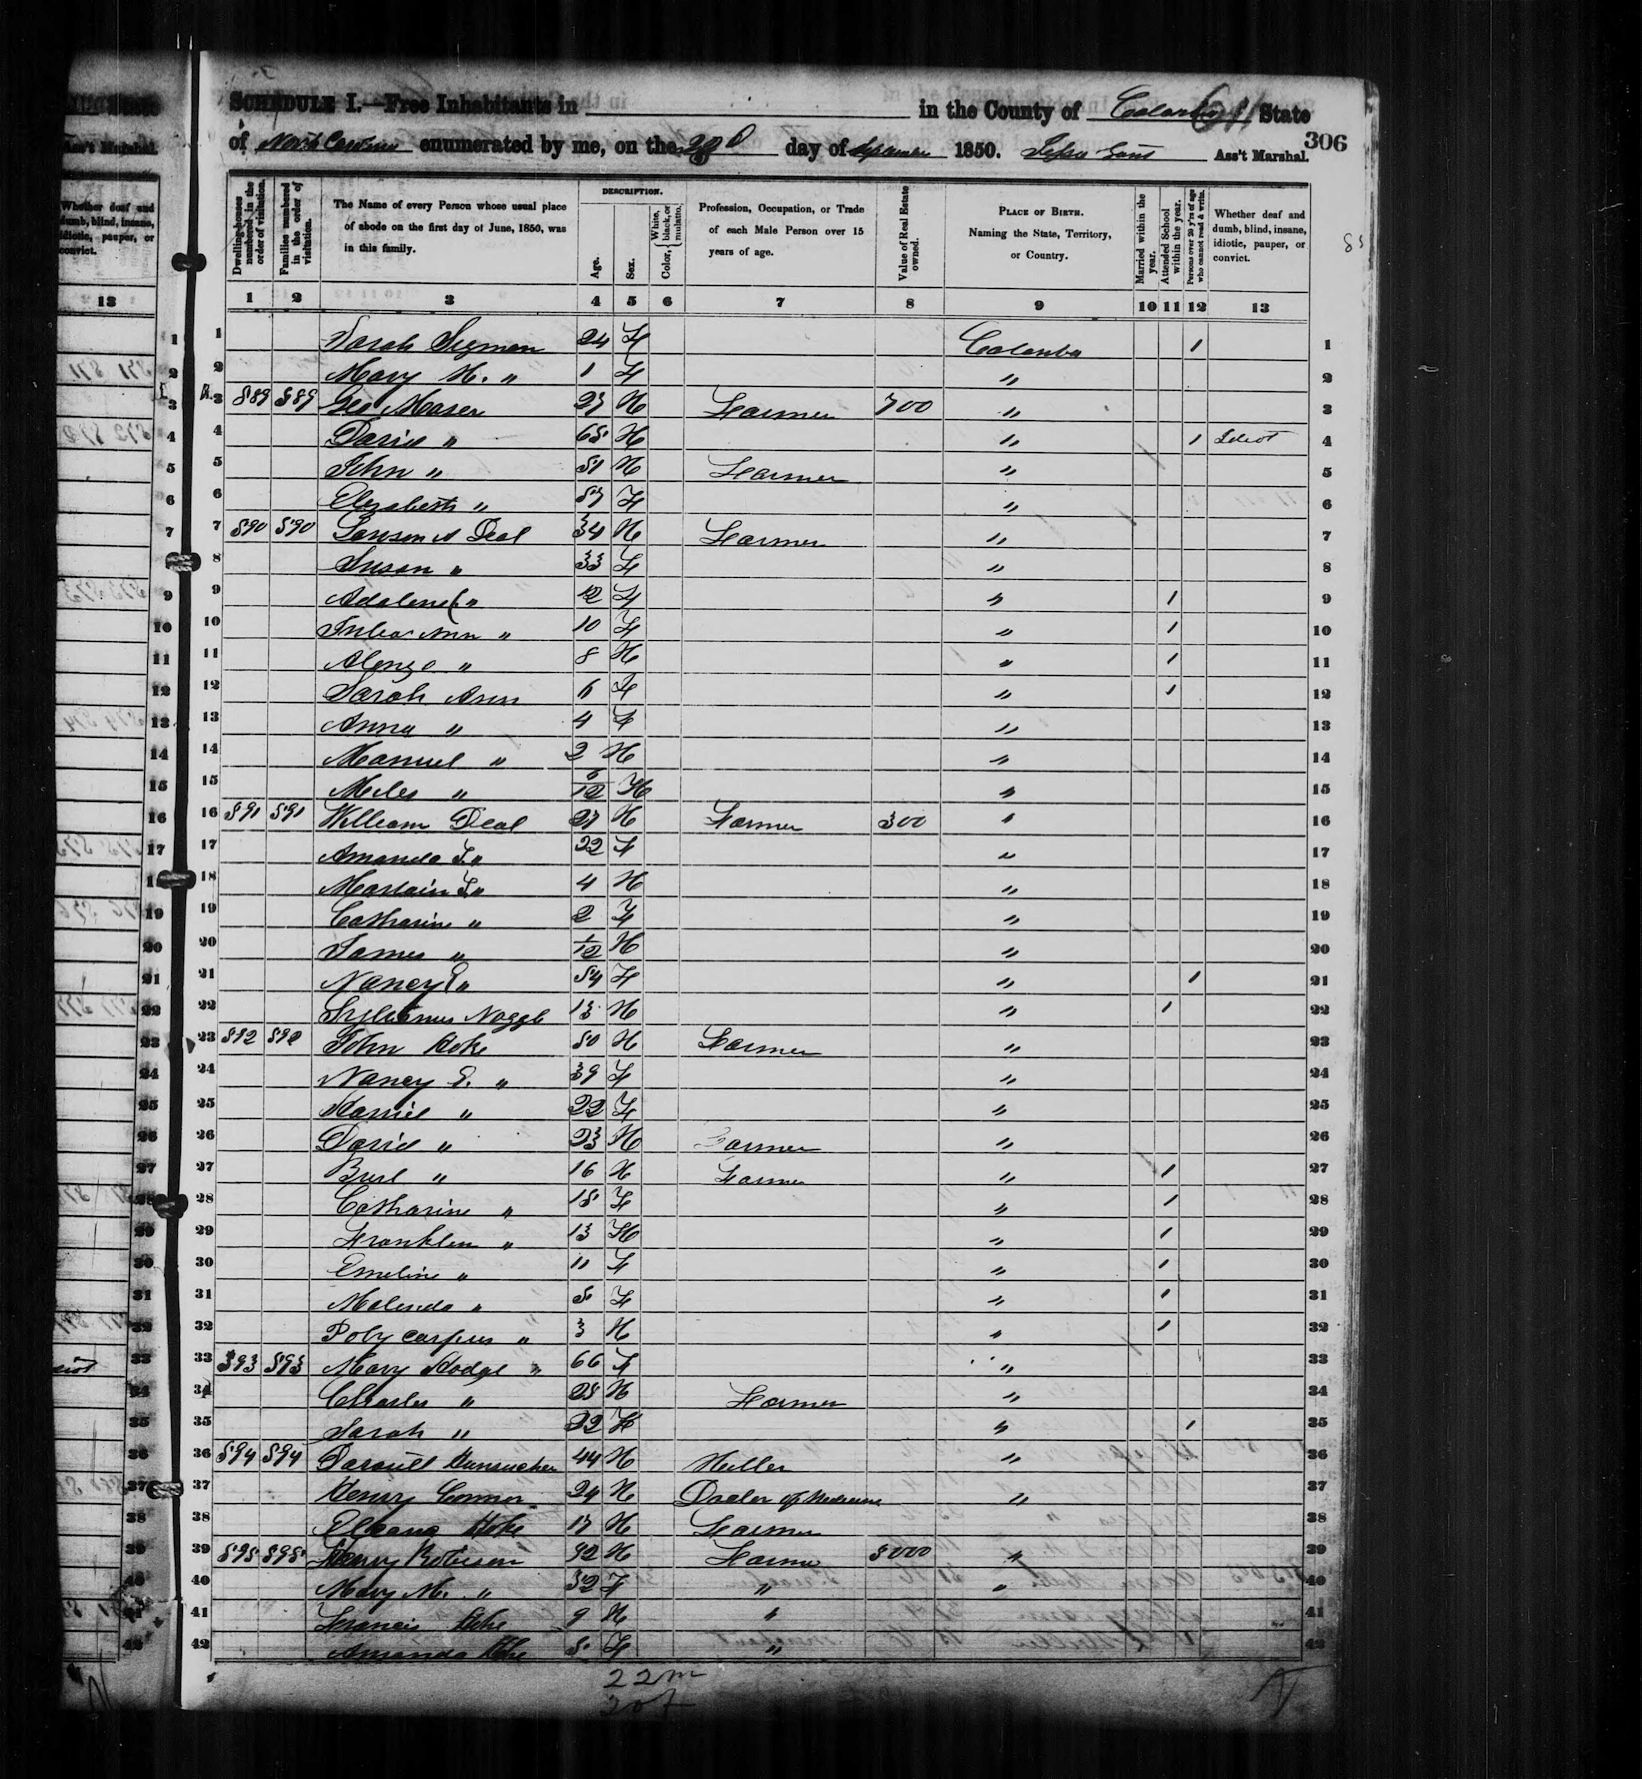 SCHEDULE I.—Free Inhabitants in in the County of Catawba State
306
of North Carolina enumerated by me, on the day of 1850. Ass't Marshal.
Dwelling-houses numbered in the order of visitation.
Families numbered in the order of visitation.
The Name of every Person whose usual place of abode on the first day of June, 1850, was in this family.
DESCRIPTION.
Age.
Sex.
Color, White, black, or mulatto.
Profession, Occupation, or Trade of each Male Person over 15 years of age.
Value of Real Estate owned.
PLACE OF BIRTH. Naming the State, Territory, or Country.
Married within the year.
Attended School within the year.
Persons over 20 y'rs of age who cannot read & write.
Whether deaf and dumb, blind, insane, idiotic, pauper, or convict.
1 2 3 4 5 6 7 8 9 10 11 12 13
1 Sarah Sigman 24 F Catawba 1 1
2 Mary M. " 1 F " 2
3 889 889 Geo Moser 27 M Farmer 700 " 3
4 David " 65 M " 1 Idiot 4
5 John " 51 M Farmer " 5
6 Elizabeth " 57 F " 6
7 890 890 Deal 34 M Farmer " 7
8 Susan " 33 F " 8
9 " 12 F " 1 9
10 Ann " 10 F " 1 10
11 Alonzo " 8 M " 1 11
12 Sarah Ann 6 F " 1 12
13 Anna " 4 F " 13
14 Manuel " 2 M " 14
15 Miles " /12 M " 15
16 891 891 William Deal 27 M Farmer 300 " 16
17 Amanda " 22 F " 17
18 " 4 M " 18
19 Catharine " 2 F " 19
20 James " 1/12 M " 20
21 Nancy " 54 F " 1 21
22 13 M " 1 22
23 892 892 John Hoke 50 M Farmer " 23
24 Nancy E. " 39 F " 24
25 " 22 F " 25
26 David " 23 M Farmer " 26
27 " 16 M Farmer " 1 27
28 Catharine " 15 F " 1 28
29 Franklin " 13 M " 1 29
30 Emeline " 11 F " 1 30
31 Malinda " 5 F " 1 31
32 Polycarpus " 3 M " 1 32
33 893 893 Mary Hodge " 66 F " 33
34 Charles " 25 M Farmer " 34
35 Sarah " 22 F " 1 35
36 894 894 Hunsucker 44 M Miller " 36
37 Henry Conner 24 M Doctor of Medicine " 37
38 Hoke 17 M Farmer 38
39 895 895 Henry Robison M Farmer 5000 " 39
40 Mary M. " 32 F " " 40
41 Francis Hoke 9 M " 41
42 Amanda Hoke 5 F " 42
22 m
20 f